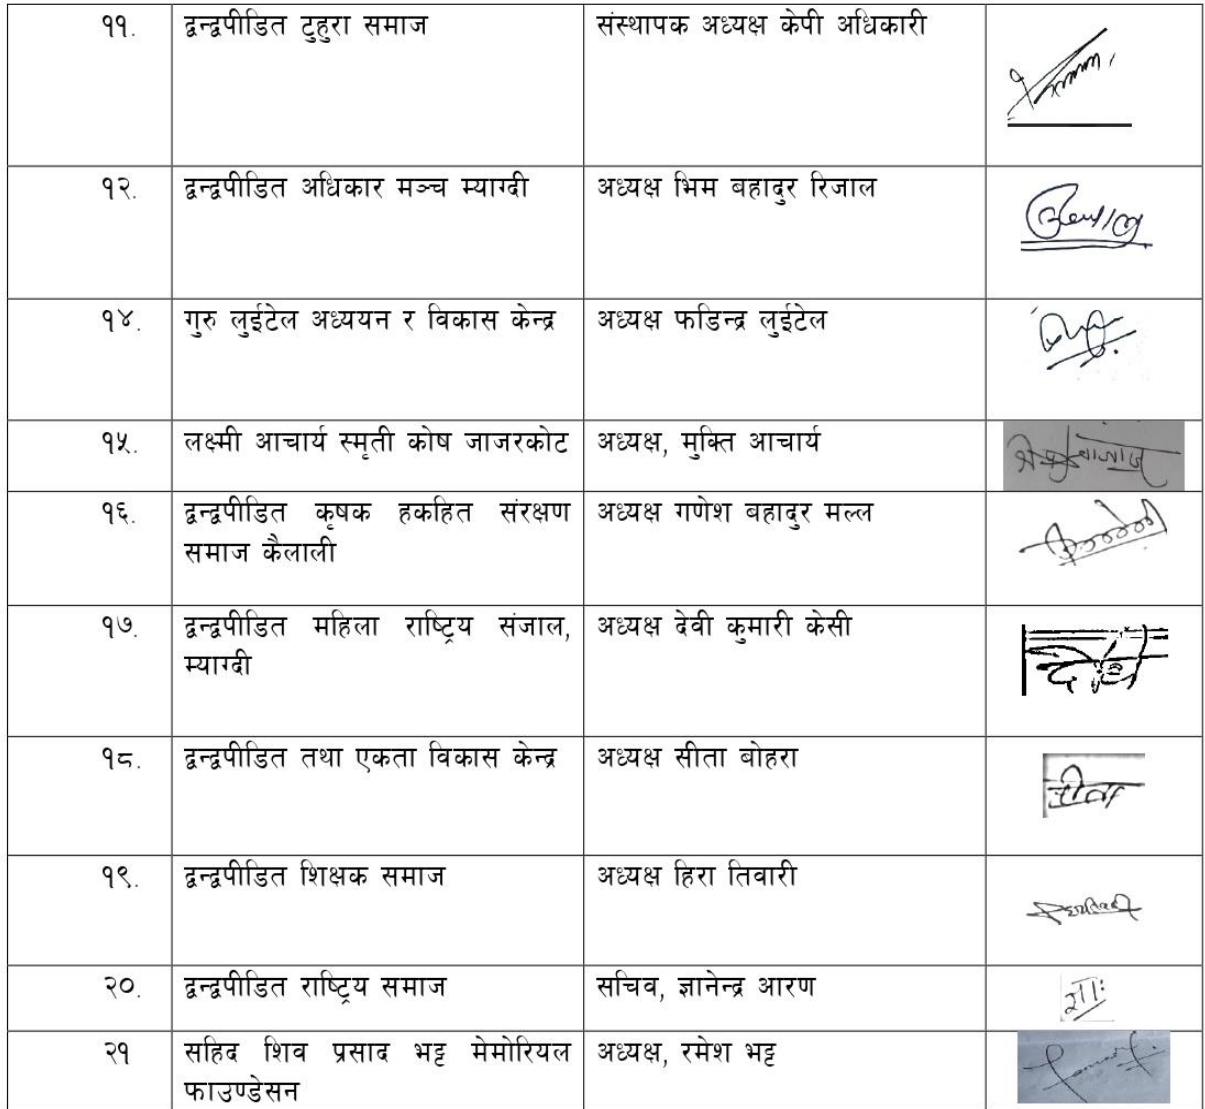 ११. द्वन्द्वपीडित टुहुरा समाज संस्थापक अध्यक्ष केपी अधिकारी
१२. द्वन्द्वपीडित अधिकार मञ्च म्याग्दी अध्यक्ष भिम बहादुर रिजाल
१४. गुरु लुईटेल अध्ययन र विकास केन्द्र अध्यक्ष फडिन्द्र लुईटेल
१५. लक्ष्मी आचार्य स्मृती कोष जाजरकोट अध्यक्ष, मुक्ति आचार्य
१६. द्वन्द्वपीडित कृषक हकहित संरक्षण अध्यक्ष गणेश बहादुर मल्ल
समाज कैलाली
१७. द्वन्द्वपीडित महिला राष्ट्रिय संजाल, अध्यक्ष देवी कुमारी केसी
म्याग्दी
१८. द्वन्द्वपीडित तथा एकता विकास केन्द्र अध्यक्ष सीता बोहरा
१९. द्वन्द्वपीडित शिक्षक समाज अध्यक्ष हिरा तिवारी
२०. द्वन्द्वपीडित राष्ट्रिय समाज सचिव, ज्ञानेन्द्र आरण
२१ सहिद शिव प्रसाद भट्ट मेमोरियल अध्यक्ष, रमेश भट्ट
फाउण्डेसन